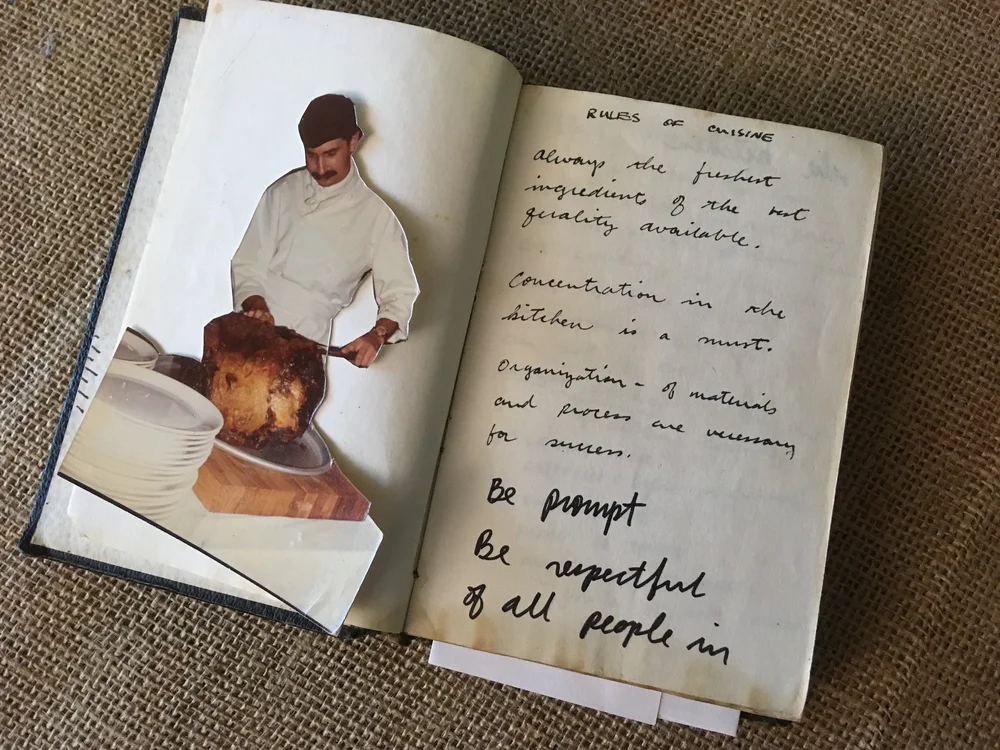 RULES OF CUISINE
Always the freshest
ingredients of the best
quality available.
Concentration in the
kitchen is a must.
Organization - of materials
and process are necessary
for success.
Be prompt
Be respectful
of all people in